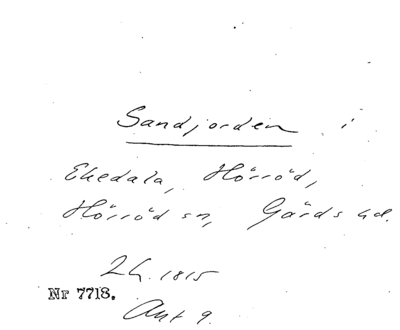 Sandjorden i
Ekedala, Hörröd,
Hörröd sn, Gärds hd.
2h. 1815
Nr 7718.
Akt 9.